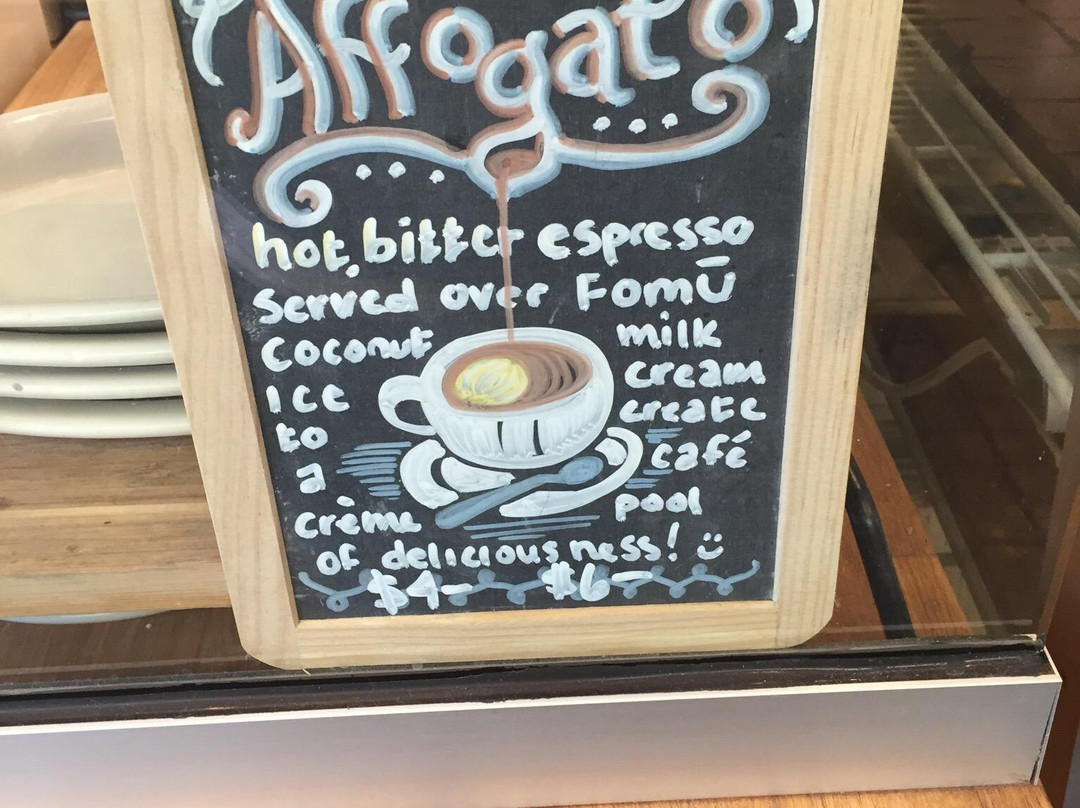 Affogato
hot, bitter espresso
served over Fomū
coconut milk
ice cream
to create
a café
crème pool
of deliciousness! :)
$4- $6-